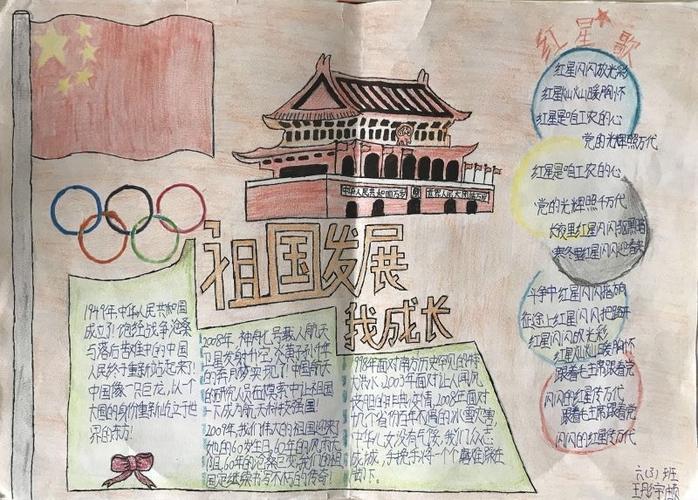 红星歌
红星闪闪放光彩
红星灿灿暖胸怀
红星是咱工农的心
党的光辉照万代
红星是咱工农的心
党的光辉照千万代
长夜里红星闪闪驱黑暗
寒冬里红星闪闪迎春来
斗争中红星闪闪指方向
征途上红星闪闪把路开
红星闪闪放光彩
红星灿灿暖胸怀
跟着毛主席跟着党
闪闪的红星传万代
跟着毛主席跟着党
闪闪的红星传万代
中华人民共和国万岁
世界人民大团结万岁
祖国发展
我成长
1949年,中华人民共和国
成立了!饱经战争沧桑
与落后苦难中的中国
人民终于重新站起来了!
中国像一只巨龙,以一个
大国的身份重新屹立于世
界的东方!
2008年,神舟七号载人航天
卫星发射升空,炎黄子孙千年
的奔月梦实现了!中国航天
的研究人员在摸索中让祖国
一
成为航天科技强国!
2009年,我们伟大的祖国迎来了
她的60岁生日,60年的风雨
60年的沧桑巨变,我们的祖
国是继续书写不朽的传奇!
1998年面对南方历史罕见的特
大洪水,2003年面对让人闻风
丧胆的非典疫情,2008年面对
九个省份百年不遇的冰雪灾害
中华儿女没有气馁,我们众志
成城,手挽手将一个个磨难踩在
脚下。
六(3)班
王